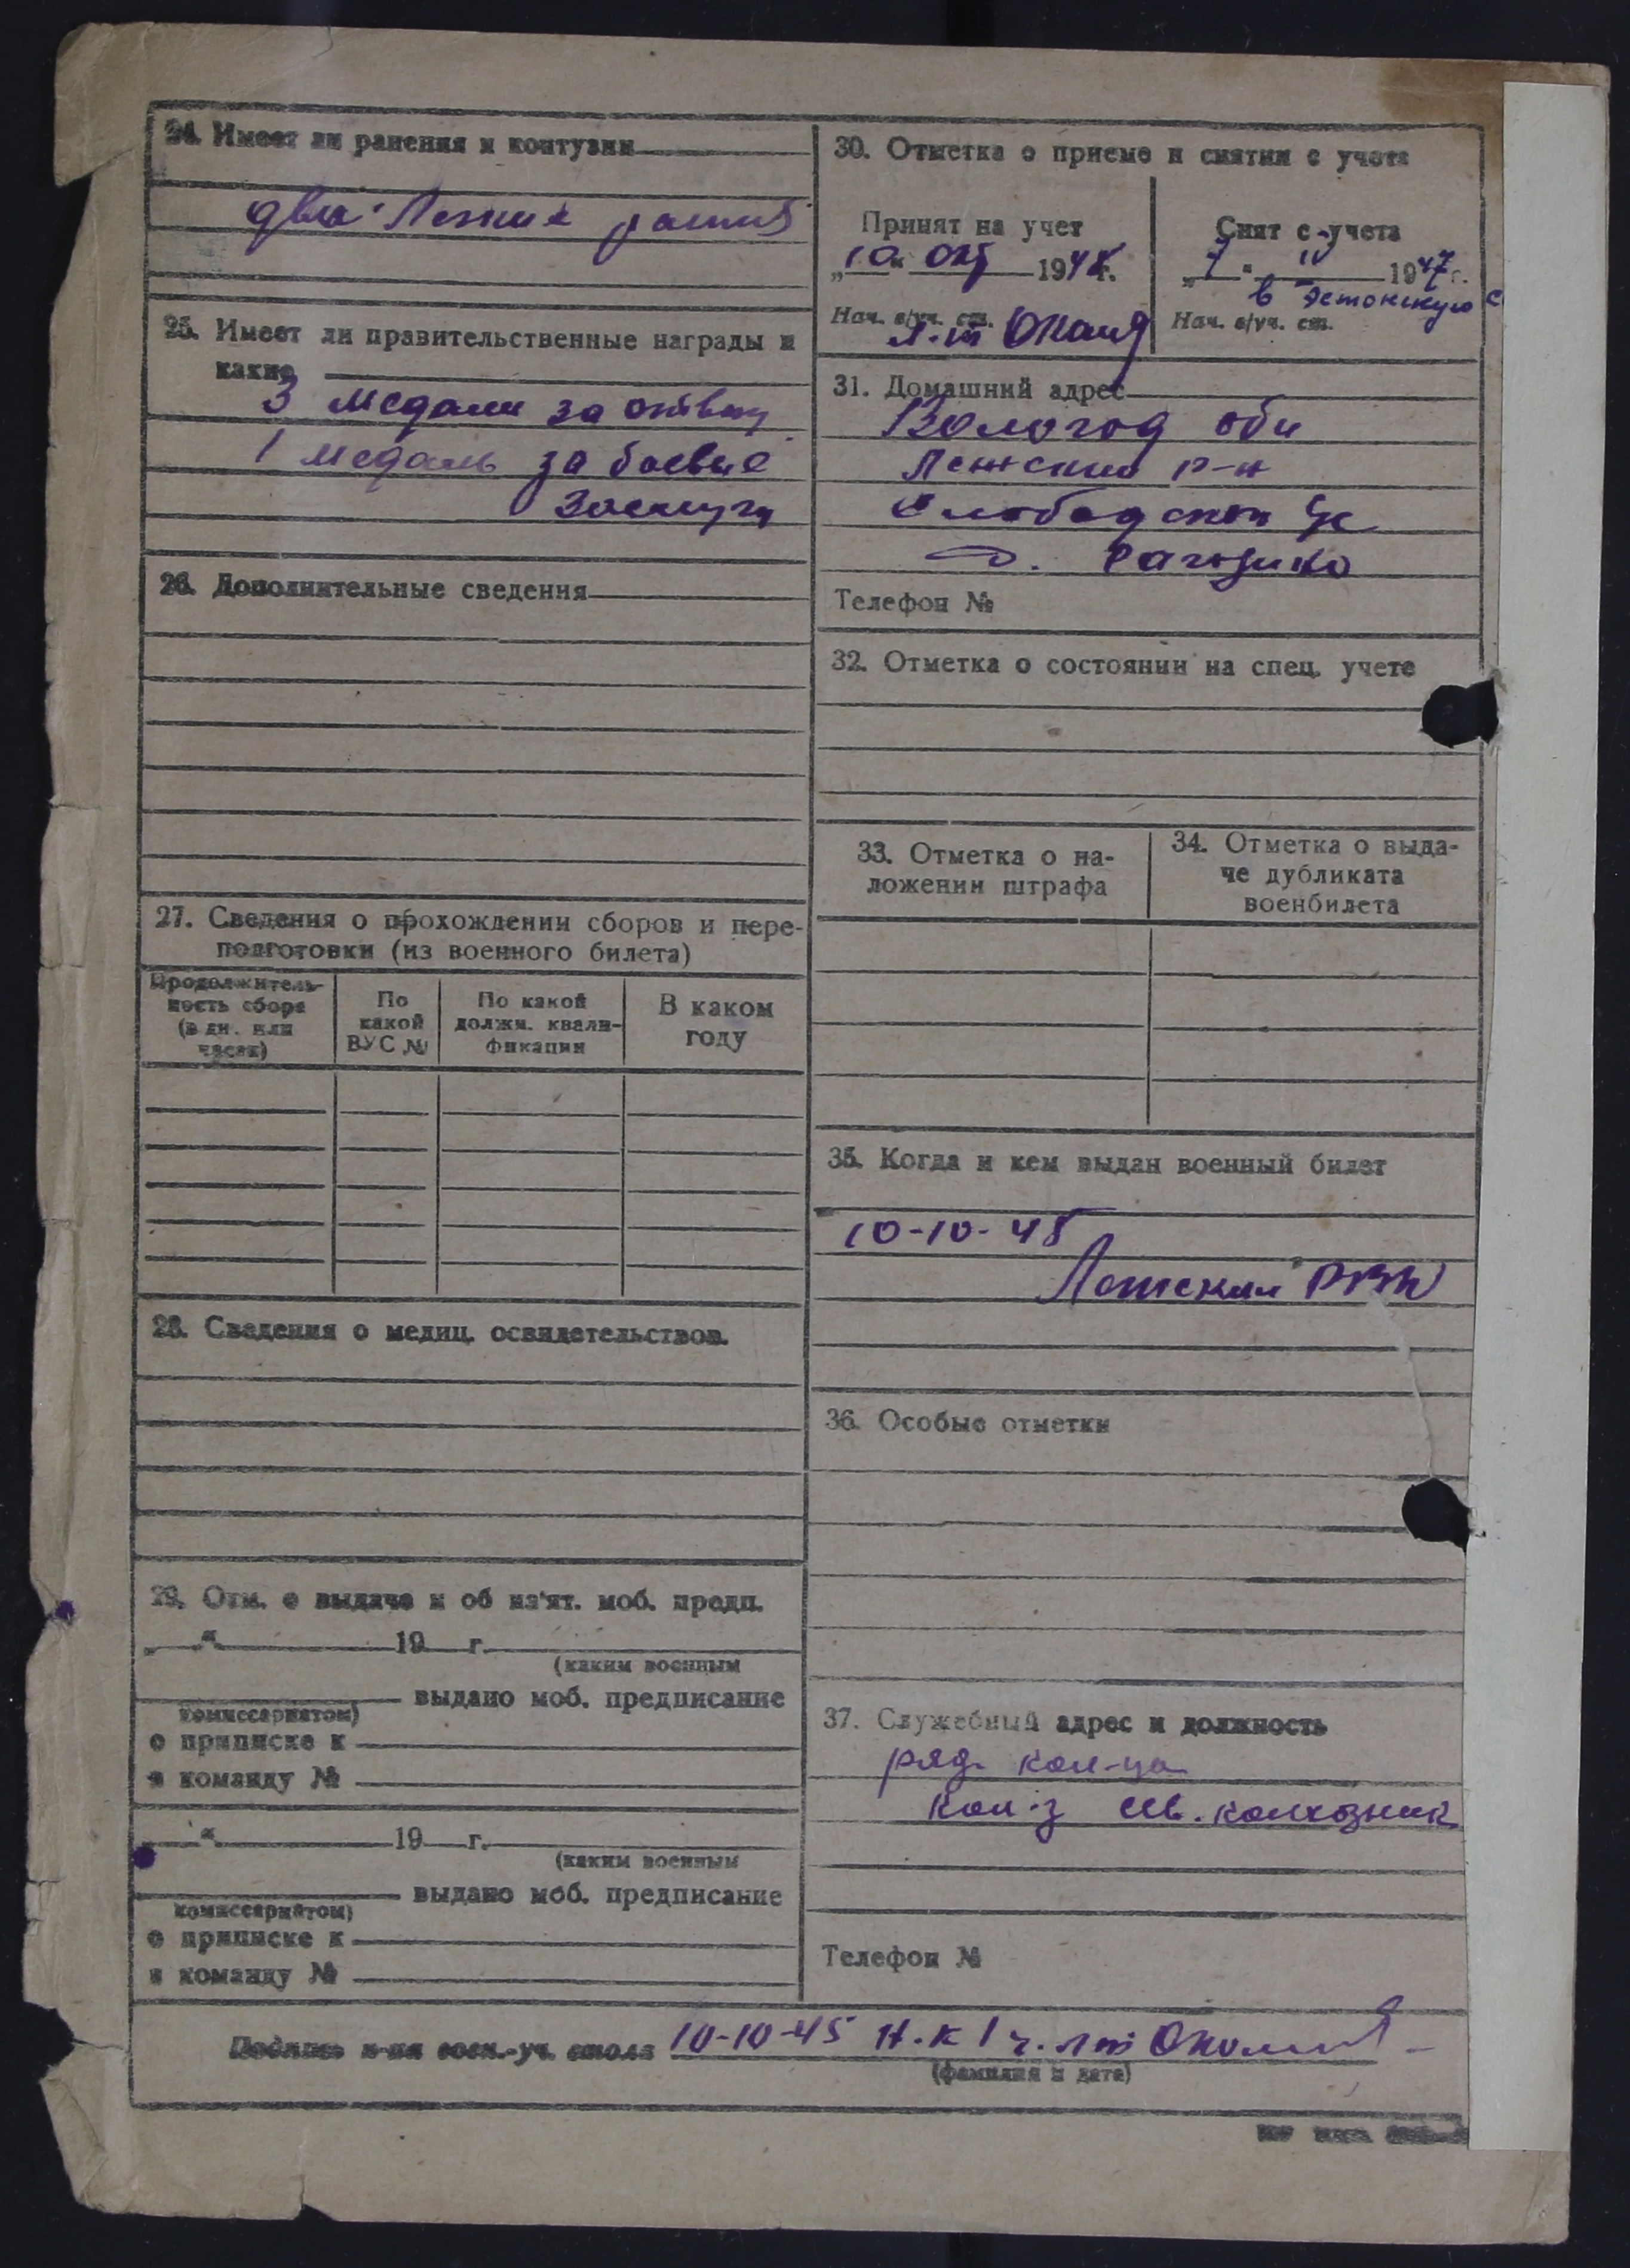 24. Имеет ли ранения и контузии
два легких
25. Имеет ли правительственные награды и
какие
3 медали за отвагу
1 медаль за боевые
заслуги
26. Дополнительные сведения
27. Сведения о прохождении сборов и пере-
подготовки (из военного билета)
Продолжитель-
ность сбора
(в дн. или
часах)
По
какой
ВУС №
По какой
должн. квали-
фикации
В каком
году
28. Сведения о медиц. освидетельствов.
29. Отм. о выдаче и об из'ят. моб. предп.
„ “ 19 г.
(каким военным
выдано моб. предписание
комиссариатом)
о приписке к
в команду №
„ “ 19 г.
(каким военным
выдано моб. предписание
комиссариатом)
о приписке к
в команду №
30. Отметка о приеме и снятии с учета
Принят на учет
„10“ окт 1945г.
Нач. в/уч. ст.
л-т
Снят с учета
„7“ IV 1947г.
в Эстонскую С
Нач. в/уч. ст.
31. Домашний адрес
Вологод обл
Лежский р-н
Слободской с/с
д.
Телефон №
32. Отметка о состоянии на спец. учете
33. Отметка о на-
ложении штрафа
34. Отметка о выда-
че дубликата
военбилета
35. Когда и кем выдан военный билет
10-10-45
Лежским РВК
36. Особые отметки
37. Служебный адрес и должность
ряд. кол-ца
кол-з колхозник
Телефон №
Подпись н-ка воен.-уч. стола 10-10-45 Н.к 1 ч. л-т
(фамилия и дата)